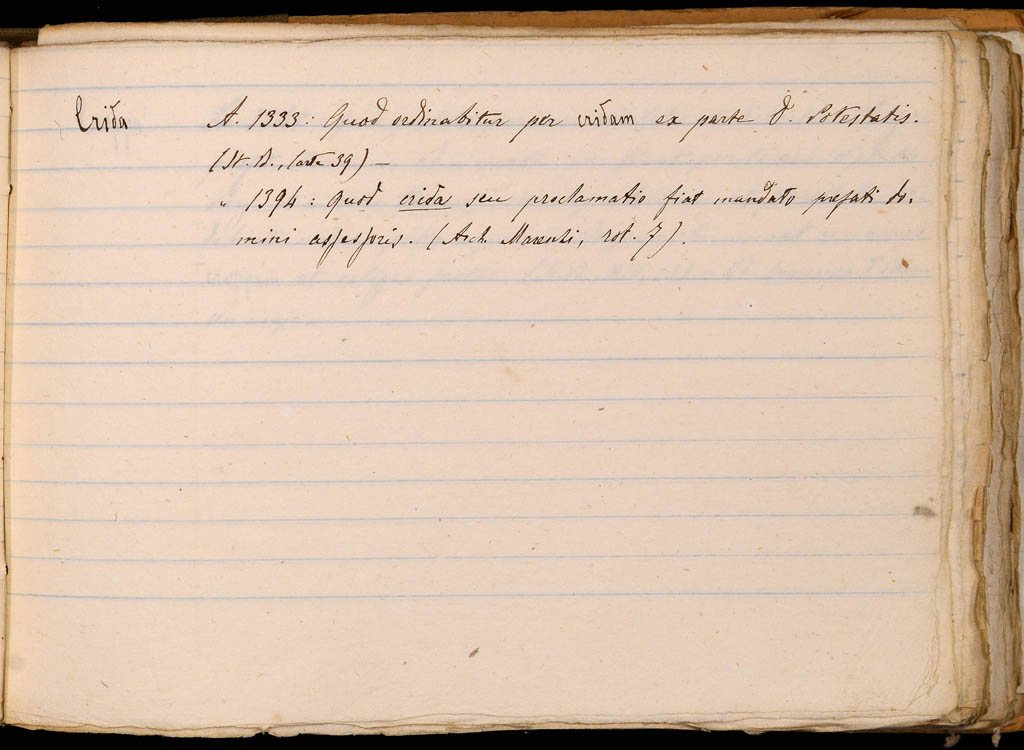 Crida A. 1333: Quod ordinabitur per cridam ex parte d. Potestatis.
(St. B., Carte 39) —
„ 1394: quod crida seu proclamatio fiat mandato prefati do-
mini assessoris. (Arch. Marenti, rot. 7).